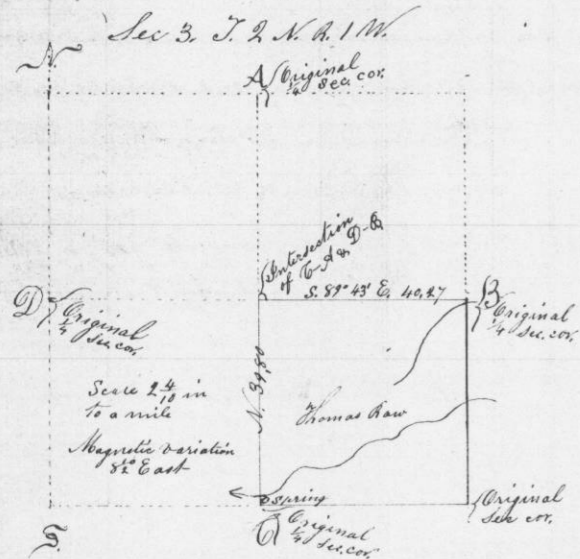 Sec 3. T. 2 N. R. 1 W.
N.
A Original
1/4 Sec. cor.
Intersection
of C-A & D-B
S. 89° 43' E. 40.27
D Original
1/4 Sec. cor.
B Original
1/4 Sec. cor.
N. 39,80
Scale 2 4/10 in
to a mile
Thomas Raw
Magnetic Variation
8 1/2° East
Spring
S.
C Original
1/4 Sec. cor.
Original
Sec cor.